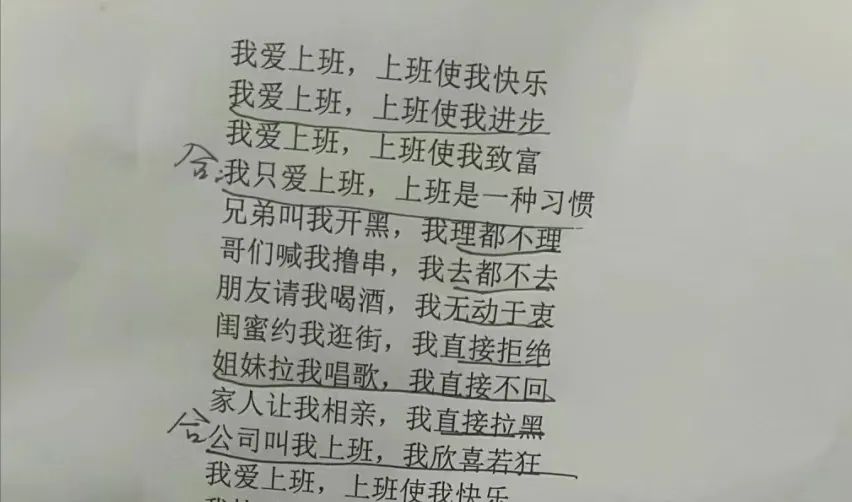 我爱上班，上班使我快乐
我爱上班，上班使我进步
我爱上班，上班使我致富
合：我只爱上班，上班是一种习惯
兄弟叫我开黑，我理都不理
哥们喊我撸串，我去都不去
朋友请我喝酒，我无动于衷
闺蜜约我逛街，我直接拒绝
姐妹拉我唱歌，我直接不回
家人让我相亲，我直接拉黑
合 公司叫我上班，我欣喜若狂
我爱上班，上班使我快乐